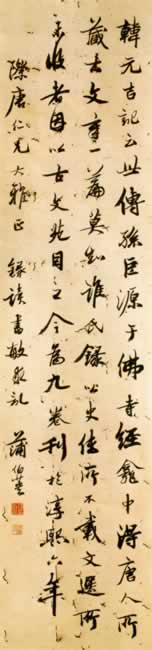 韓元吉記云世傳孫巨源于佛寺經龕中得唐人所
藏古文章一篇莫知誰氏錄也史傳所不載文選所
未收者因以古文苑目之今為九卷刊於淳熙六年
際唐仁兄大雅正 錄讀書敏求記 蒲伯英